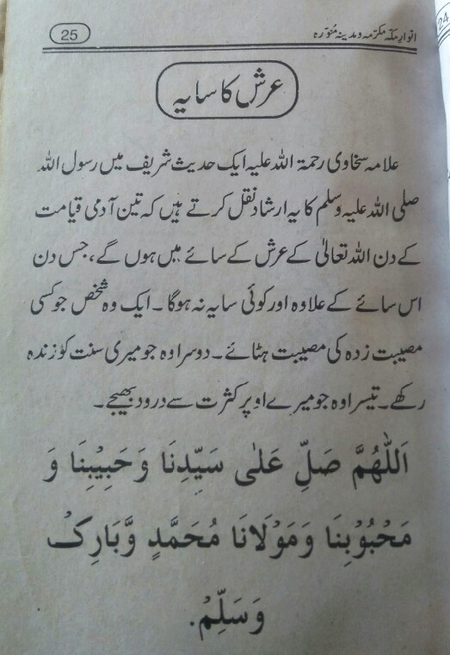 25 انوارِ مکّہ مکرّمہ و مدینہ منوّرہ
عرش کا سایہ
علامہ سخاوی رحمۃ اللہ علیہ ایک حدیث شریف میں رسول اللہ
صلی اللہ علیہ وسلم کا یہ ارشاد نقل کرتے ہیں کہ تین آدمی قیامت
کے دن اللہ تعالیٰ کے عرش کے سائے میں ہوں گے، جس دن
اس سائے کے علاوہ اور کوئی سایہ نہ ہوگا۔ ایک وہ شخص جو کسی
مصیبت زدہ کی مصیبت ہٹائے۔ دوسرا وہ جو میری سنت کو زندہ
رکھے۔ تیسرا وہ جو میرے اوپر کثرت سے درود بھیجے۔
اَللّٰهُمَّ صَلِّ عَلٰى سَيِّدِنَا وَحَبِيْبِنَا وَ
مَحْبُوْبِنَا وَمَوْلَانَا مُحَمَّدٍ وَّبَارِكْ
وَسَلِّمْ.
24